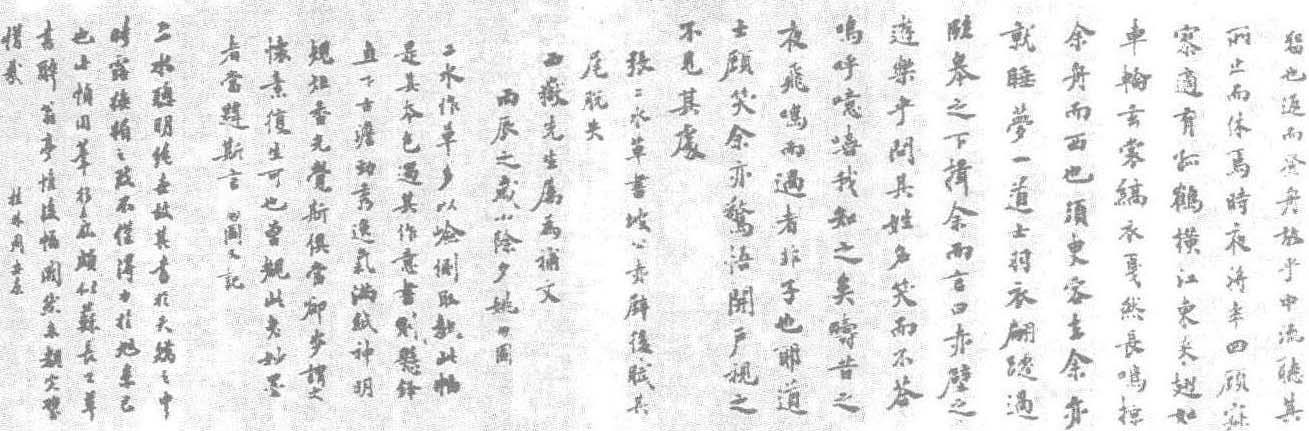 留也返而登舟放乎中流聽其
所止而休焉時夜將半四顧寂
寥適有孤鶴橫江東來翅如
車輪玄裳縞衣戛然長鳴掠
余舟而西也須臾客去余亦
就睡夢一道士羽衣翩躚過
臨皋之下揖余而言曰赤壁之
遊樂乎問其姓名笑而不答
嗚呼噫嘻我知之矣疇昔之
夜飛鳴而過者非子也耶道
士顧笑余亦驚悟開戶視之
不見其處
張二水草書坡公赤壁後賦其
尾脫失
西嶽先生屬為補文
丙辰之歲小除夕姚
二水作草多以嶮側取勢此幅
是其本色過其作意書則懸鋒
直下古澹勁秀逸氣滿紙神明
規矩香光覺斯俱當卻步謂
懷素復生可也曾觀此老妙墨
者當韙斯言 又記
二水聰明絕世故其書於夭矯之中
時露之致不僅得力於旭素已
也此幀用筆頗似蘇長公草
書醉翁亭惜後幅闕然未覩完璧
惜哉 桂林周